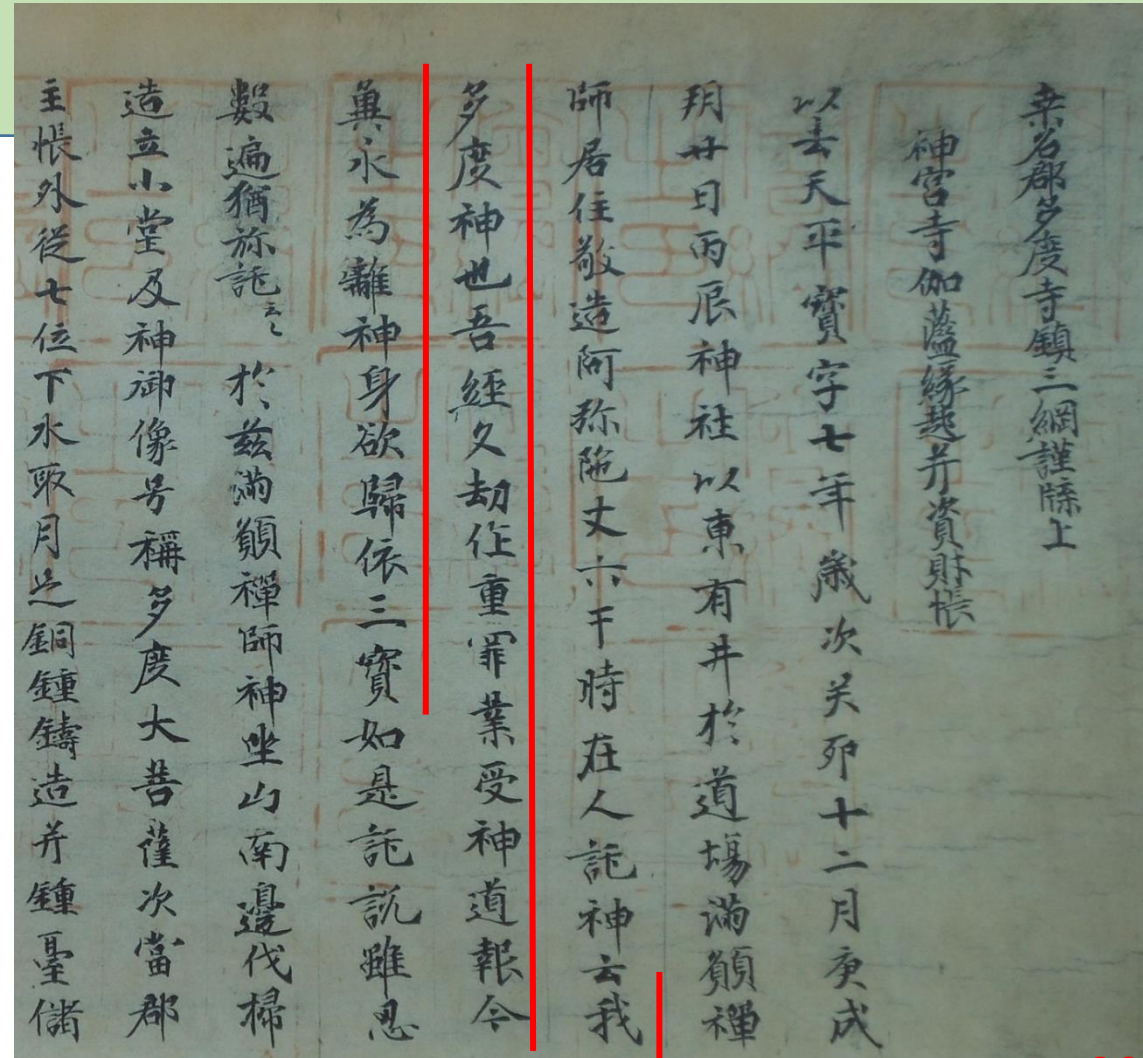 桒名郡多度寺鎮三綱謹牒上
神宮寺伽藍縁起并資財帳
以去天平寳字七年歳次癸卯十二月庚戌
朔廿日丙辰神社以東有井於道場滿願禪
師居住敬造阿弥陁丈六于時在人託神云我
多度神也吾經久劫作重罪業受神道報今
冀永為離神身欲歸依三寳如是託訖雖忍
數遍猶弥託云々於兹滿願禪師神坐山南邊伐掃
造立小堂及神御像号稱多度大菩薩次當郡
主帳外從七位下水取月足銅鍾鑄造并鍾臺儲